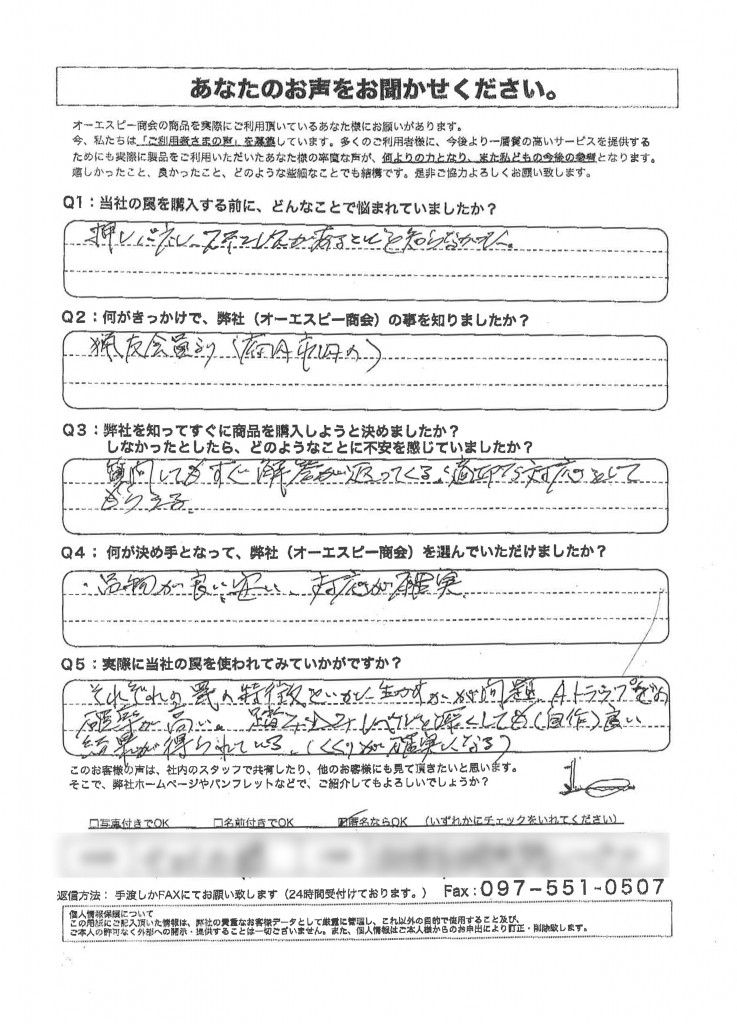 あなたのお声をお聞かせください。
オーエスピー商会の商品を実際にご利用頂いているあなた様にお願いがあります。
今、私たちは「ご利用者さまの声」を募集しています。多くのご利用者様に、今後より一層質の高いサービスを提供する
ためにも実際に製品をご利用いただいたあなた様の率直な声が、何よりの力となり、また私どもの今後の参考となります。
嬉しかったこと、良かったこと、どのような些細なことでも結構です。是非ご協力よろしくお願い致します。
Q1：当社の罠を購入する前に、どんなことで悩まれていましたか？
押しバネ があることを知らなかった。
Q2：何がきっかけで、弊社（オーエスピー商会）の事を知りましたか？
猟友会員より
Q3：弊社を知ってすぐに商品を購入しようと決めましたか？
しなかったとしたら、どのようなことに不安を感じていましたか？
質問してもすぐ解答が返ってくる、適切な対応をして
もらえる。
Q4： 何が決め手となって、弊社（オーエスピー商会）を選んでいただけましたか？
・品物が良い、安い、対応が確実
Q5：実際に当社の罠を使われてみていかがですか？
それぞれの罠の特徴をいかに生かすかが問題、Aトラップ
確率が高い。踏み込み 深くしても（自作）良い
結果が得られている。（くくりが確実になる）
このお客様の声は、社内のスタッフで共有したり、他のお客様にも見て頂きたいと思います。
そこで、弊社ホームページやパンフレットなどで、ご紹介してもよろしいでしょうか？
□写真付きでOK □名前付きでOK ☑匿名ならOK （いずれかにチェックをいれてください）
返信方法： 手渡しかFAXにてお願い致します（24時間受付けております。） Fax：097-551-0507
個人情報保護について
この用紙にご記入頂いた情報は、弊社の貴重なお客様データとして厳重に管理し、これ以外の目的で使用すること及び、
ご本人の許可なく外部への開示・提供することは一切ございません。また、個人情報はご本人様からのお申出により訂正・削除致します。